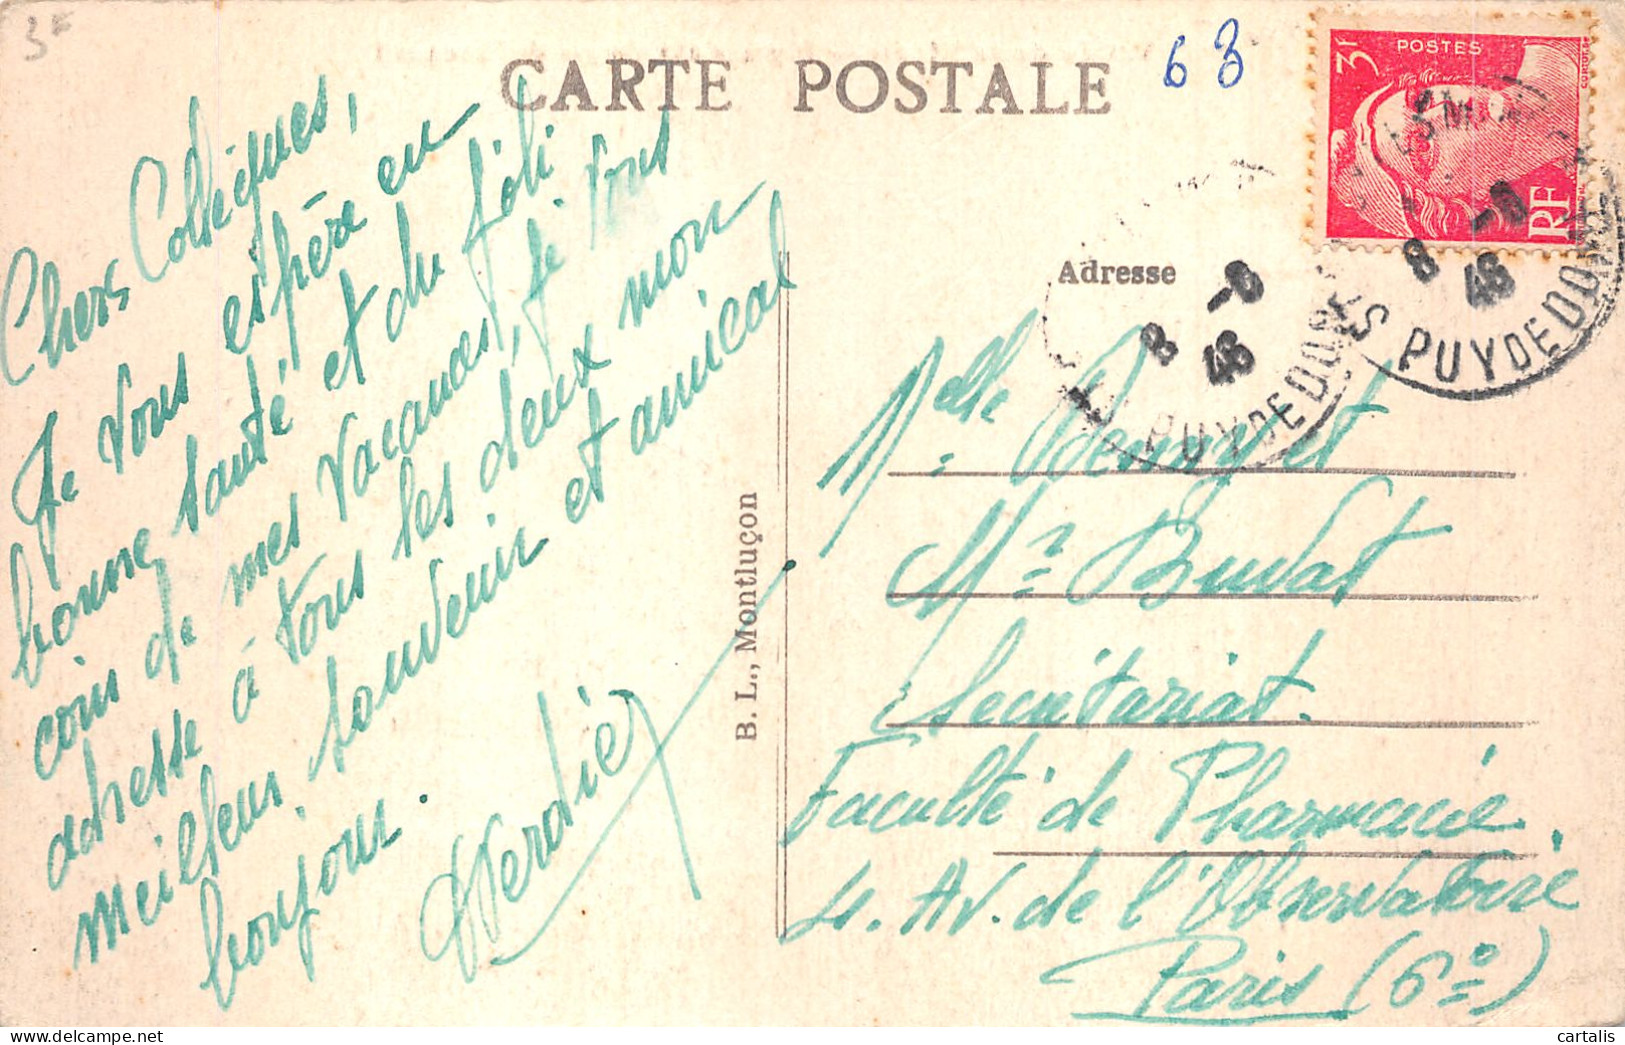 3F
CARTE POSTALE
63
POSTES
3F
RF
Chers Collègues,
Je vous espère en
bonne santé et du joli
coin de mes vacances, je vous
adresse à tous les deux mon
meilleur souvenir et amical
bonjour.
Verdier
B. L., Montluçon
Adresse
8 -8
46
PUY DE DOME
8 -8
46
S PUY DE DOME
Melle
Mr Buvat
Secrétariat.
Faculté de Pharmacie.
4. Av. de l'Observatoire
Paris (6e)
cartalis